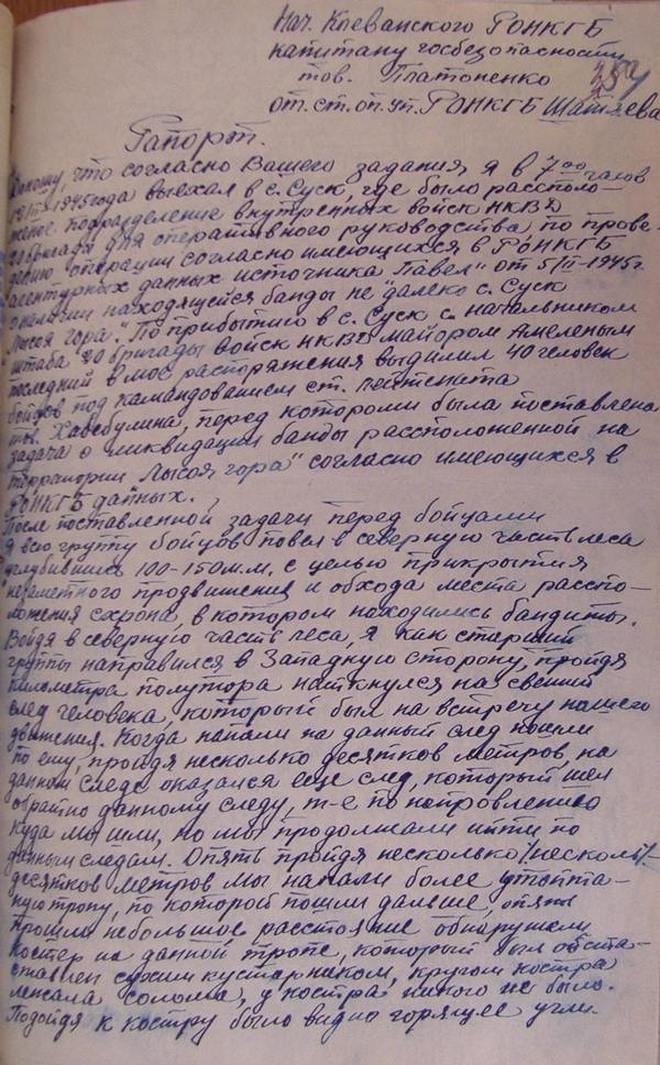 Нач. Клеванского РОНКГБ
капитану госбезопасности
тов. Платоненко
от. ст. оп. уп. РОНКГБ
Рапорт.
Доношу, что согласно Вашего задания, я в 7 00 часов
1945 года выехал в с. Суск, где было распо-ло-
женое подразделение внутренных войск НКВД
20 бригады для оперативного руководства по прове-
дению операции согласно имеющихся в РОНКГБ
агентурных данных источника Павел" от 5/II-1945г.
о наличии находящейся банды не "далеко с. Суск
Лысоя гора". По прибытию в с. Суск с. начальником
штаба 20 бригады войск НКВД майором Амеленым
последний в мое распоряжения выдилил 40 человек
бойцов под командованием ст. лейтената
тов. Хабебулина, перед которыми была поставлена
задача о ликвидации банды рассположенной на
терратории Лысоя гора" согласно имеющихся в
РОНКГБ данных.
После поставленной задачи перед бойцами
я всю группу бойцов повел в северную часть леса
углубившись 100-150 м.м. с целью прикрытия
продвишения и обхода места расспо-
ложения схрона, в котором находились бандиты.
Войдя в северную часть леса, я как старший
группы направился в Западную сторону, пройдя
километра полутора наткнулся на свежий
след человека, который был на встречу нашего
движения. Когда напали на данный след пошли
по ему, пройдя несколько десятков метров, на
данном следе оказался еще след, который шел
обратно данному следу, т-е по направлению
куда мы шли, но мы продолжали итти по
данным следам. Опять пройдя несколько /несколь/-
десятков метров мы напали более утопта-
ную тропу, по которой пошли дальше, опять
прошли небольшое расстояние обнаружели
костер на данной тропе, который был обста-
ставлен сухим кустарником, кругом костра
лежала солома, у костра никого не было.
Подойдя к костру было видно горящее угли.